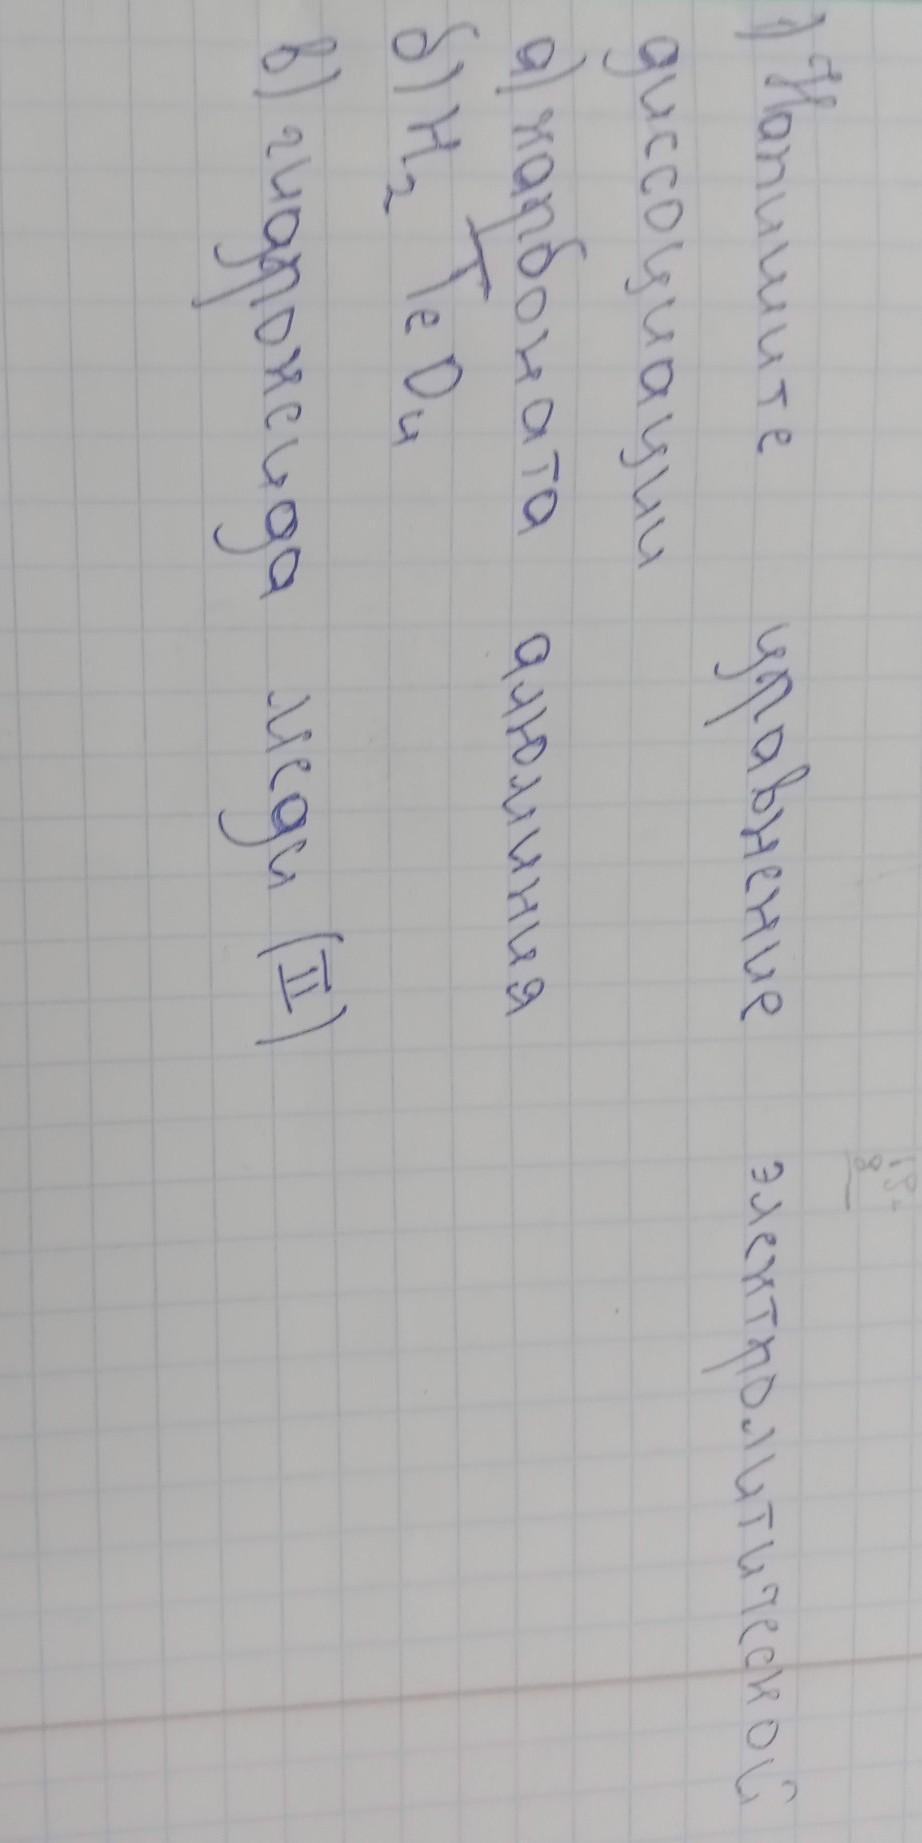 1) Напишите уравнение электролитической
диссоциации
а) карбоната алюминия
б) H₂TeO₄
в) гидроксида меди (II)